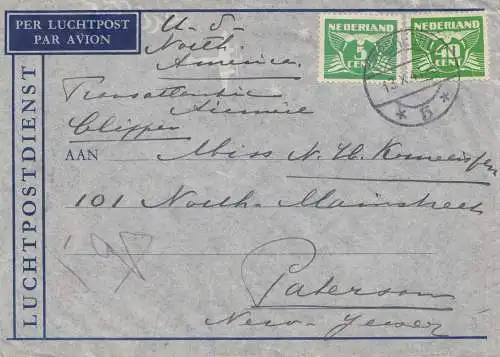 PER LUCHTPOST
PAR AVION
U-S-
North
America.
Transatlantic
Airmail
Clipper
NEDERLAND
5
CENT
NEDERLAND
10
CENT
* 5 *
LUCHTPOSTDIENST
AAN
Miss N. H.
101 North-Mainstreet
Paterson
New-Jersey